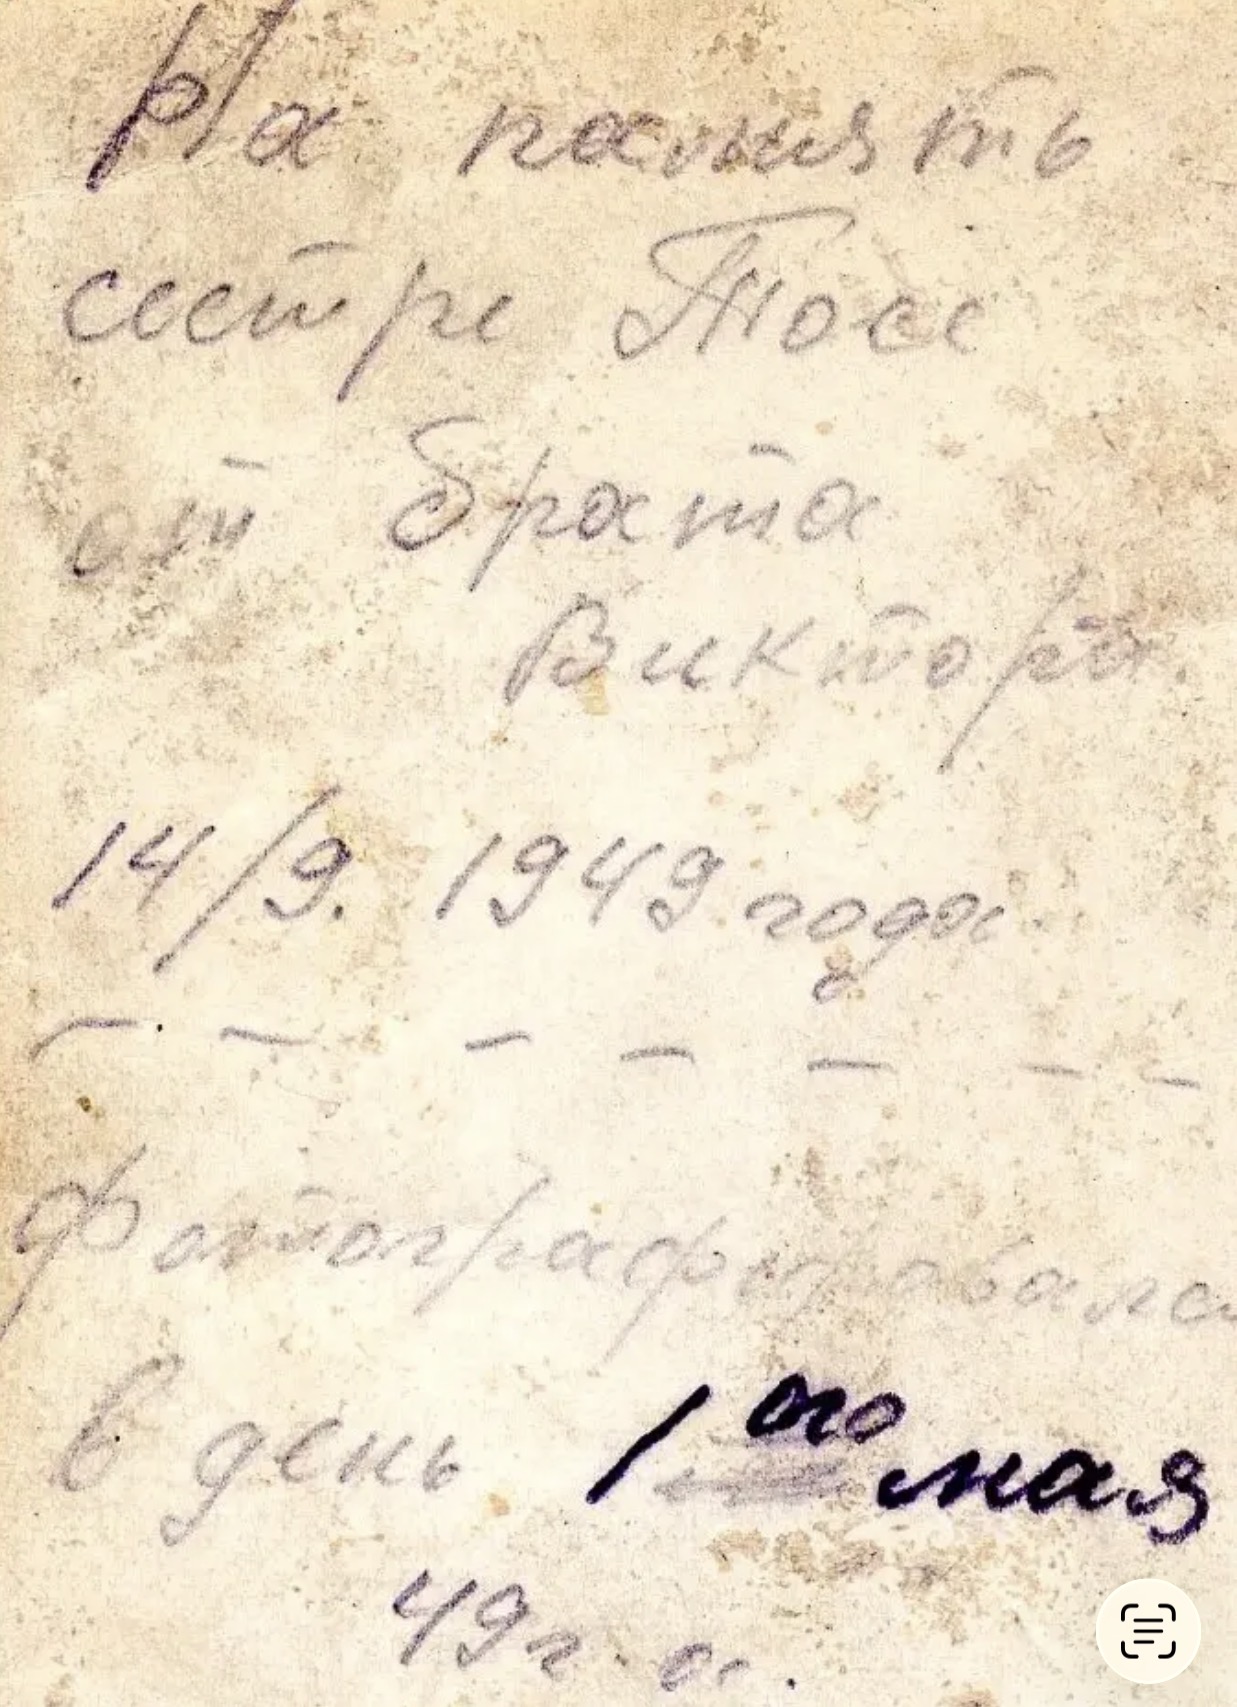 На память
сестре Тосе
от брата
Виктора.
14/9. 1949 года
Фотографировался
в день 1ого мая
49 г.